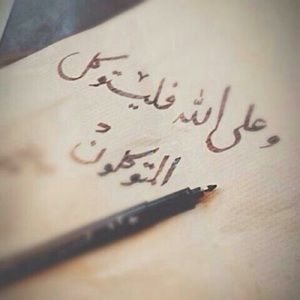 وعلى الله فليتوكل
المتوكلون